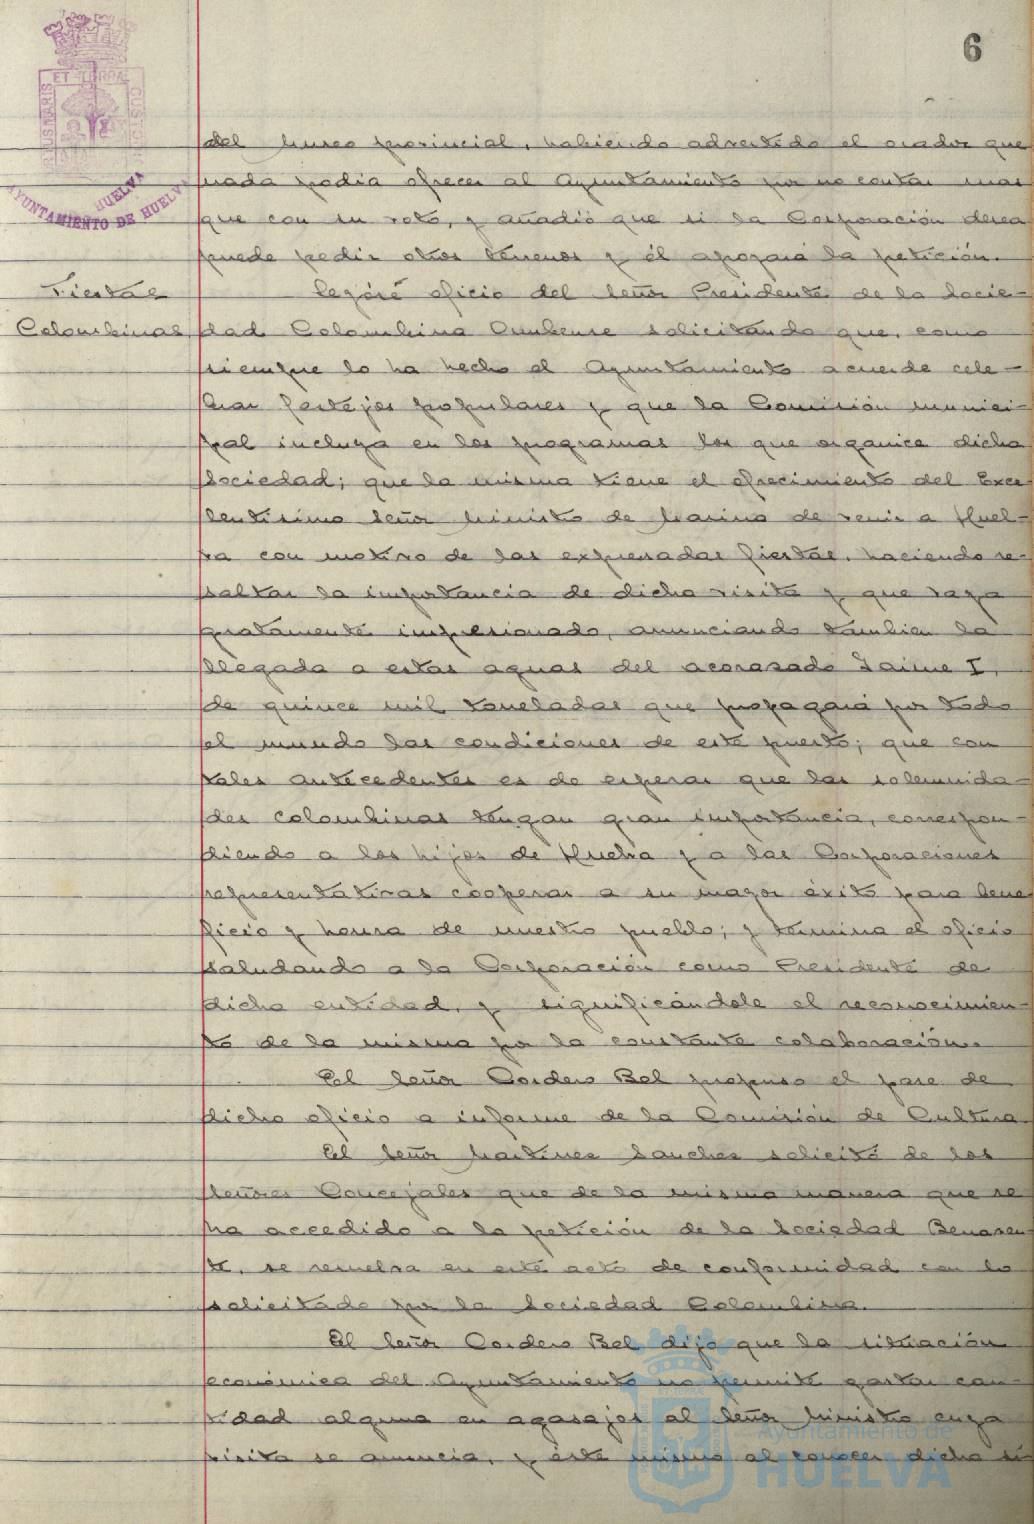 6
ET TERRAE
CUSTODIA
PORTUS MARIS
HUELVA
AYUNTAMIENTO DE HUELVA
del museo provincial, habiendo advertido el orador que
nada podia ofrecer al Ayuntamiento por no contar mas
que con su voto, y añadió que si la Corporación desea
puede pedir otros terrenos y él apoyará la petición.
Fiestas
Colombinas.
Leyóse oficio del Señor Presidente de la Socie-
dad Colombina Onubense solicitando que, como
siempre lo ha hecho el Ayuntamiento acuerde cele-
brar festejos populares y que la Comisión munici-
pal incluya en los programas los que organice dicha
Sociedad; que la misma tiene el ofrecimiento del Exce-
lentisimo Señor Ministro de Marina de venir a Huel-
va con motivo de las expresadas fiestas, haciendo re-
saltar la importancia de dicha visita y que vaya
gratamente impresionado, anunciando tambien la
llegada a estas aguas del acorazado Jaime I,
de quince mil toneladas que propagará por todo
el mundo las condiciones de este puerto; que con
tales antecedentes es de esperar que las solemnida-
des colombinas tengan gran importancia, correspon-
diendo a los hijos de Huelva y a las Corporaciones
representativas cooperar a su mayor éxito para bene-
ficio y honra de nuestro pueblo; y termina el oficio
saludando a la Corporación como Presidente de
dicha entidad, y significándole el reconocimien-
to de la misma por la constante colaboración.
El Señor Cordero Bel propuso el pase de
dicho oficio a informe de la Comisión de Cultura
El Señor Martinez Sanchez solicitó de los
Señores Concejales que de la misma manera que se
ha accedido a la petición de la Sociedad Benaven-
te, se resuelva en este acto de conformidad con lo
solicitado por la Sociedad Colombina.
El Señor Cordero Bel dijo que la situación
económica del Ayuntamiento no permite gastar can-
tidad alguna en agasajos al Señor Ministro cuya
visita se anuncia, y éste mismo al conocer dicha si-
Ayuntamiento de
HUELVA